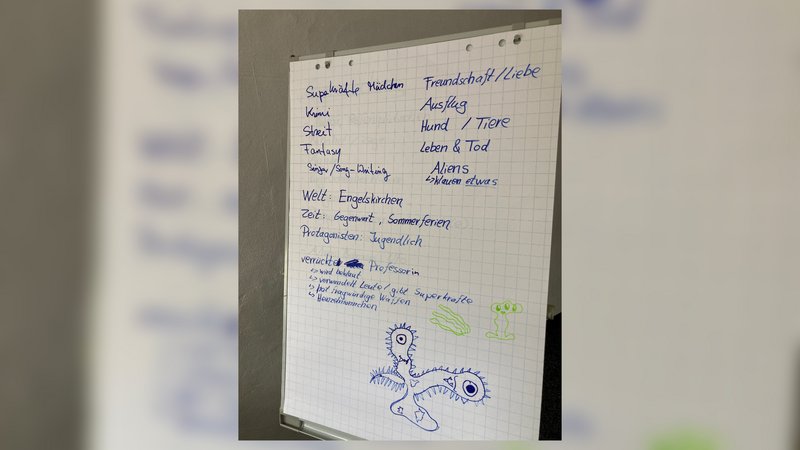 Superkräfte Mädchen
Krimi
Streit
Fantasy
Singer/Song-Writing
Freundschaft/Liebe
Ausflug
Hund / Tiere
Leben & Tod
Aliens
↳klauen etwas
Welt: Engelskirchen
Zeit: Gegenwart, Sommerferien
Protagonisten: Jugendlich
verrückte Professorin
↳ wird beklaut
↳ verwandelt Leute / gibt Superkräfte
↳ hat fragwürdige Waffen
↳ Heinzelmännchen